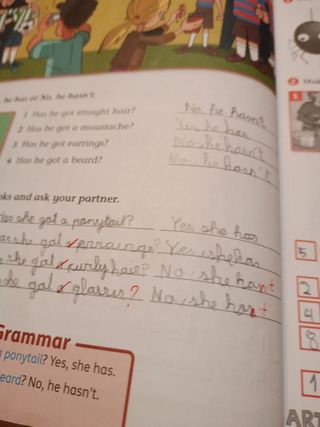 he has or No, he hasn't.
1 Has he got straight hair? No, he hasn't
2 Has he got a moustache? Yes, he has
3 Has he got earrings? No, he hasn't
4 Has he got a beard? No, he hasn't
oks and ask your partner.
Has she got a ponytail? Yes she has
as she got earraings? Yes, she has
s she got curly haie? No, she hasn't
she got glasses? No, she hasn't
Grammar
ponytail? Yes, she has.
eard? No, he hasn't.
2
1
5
2
4
8
1
ART